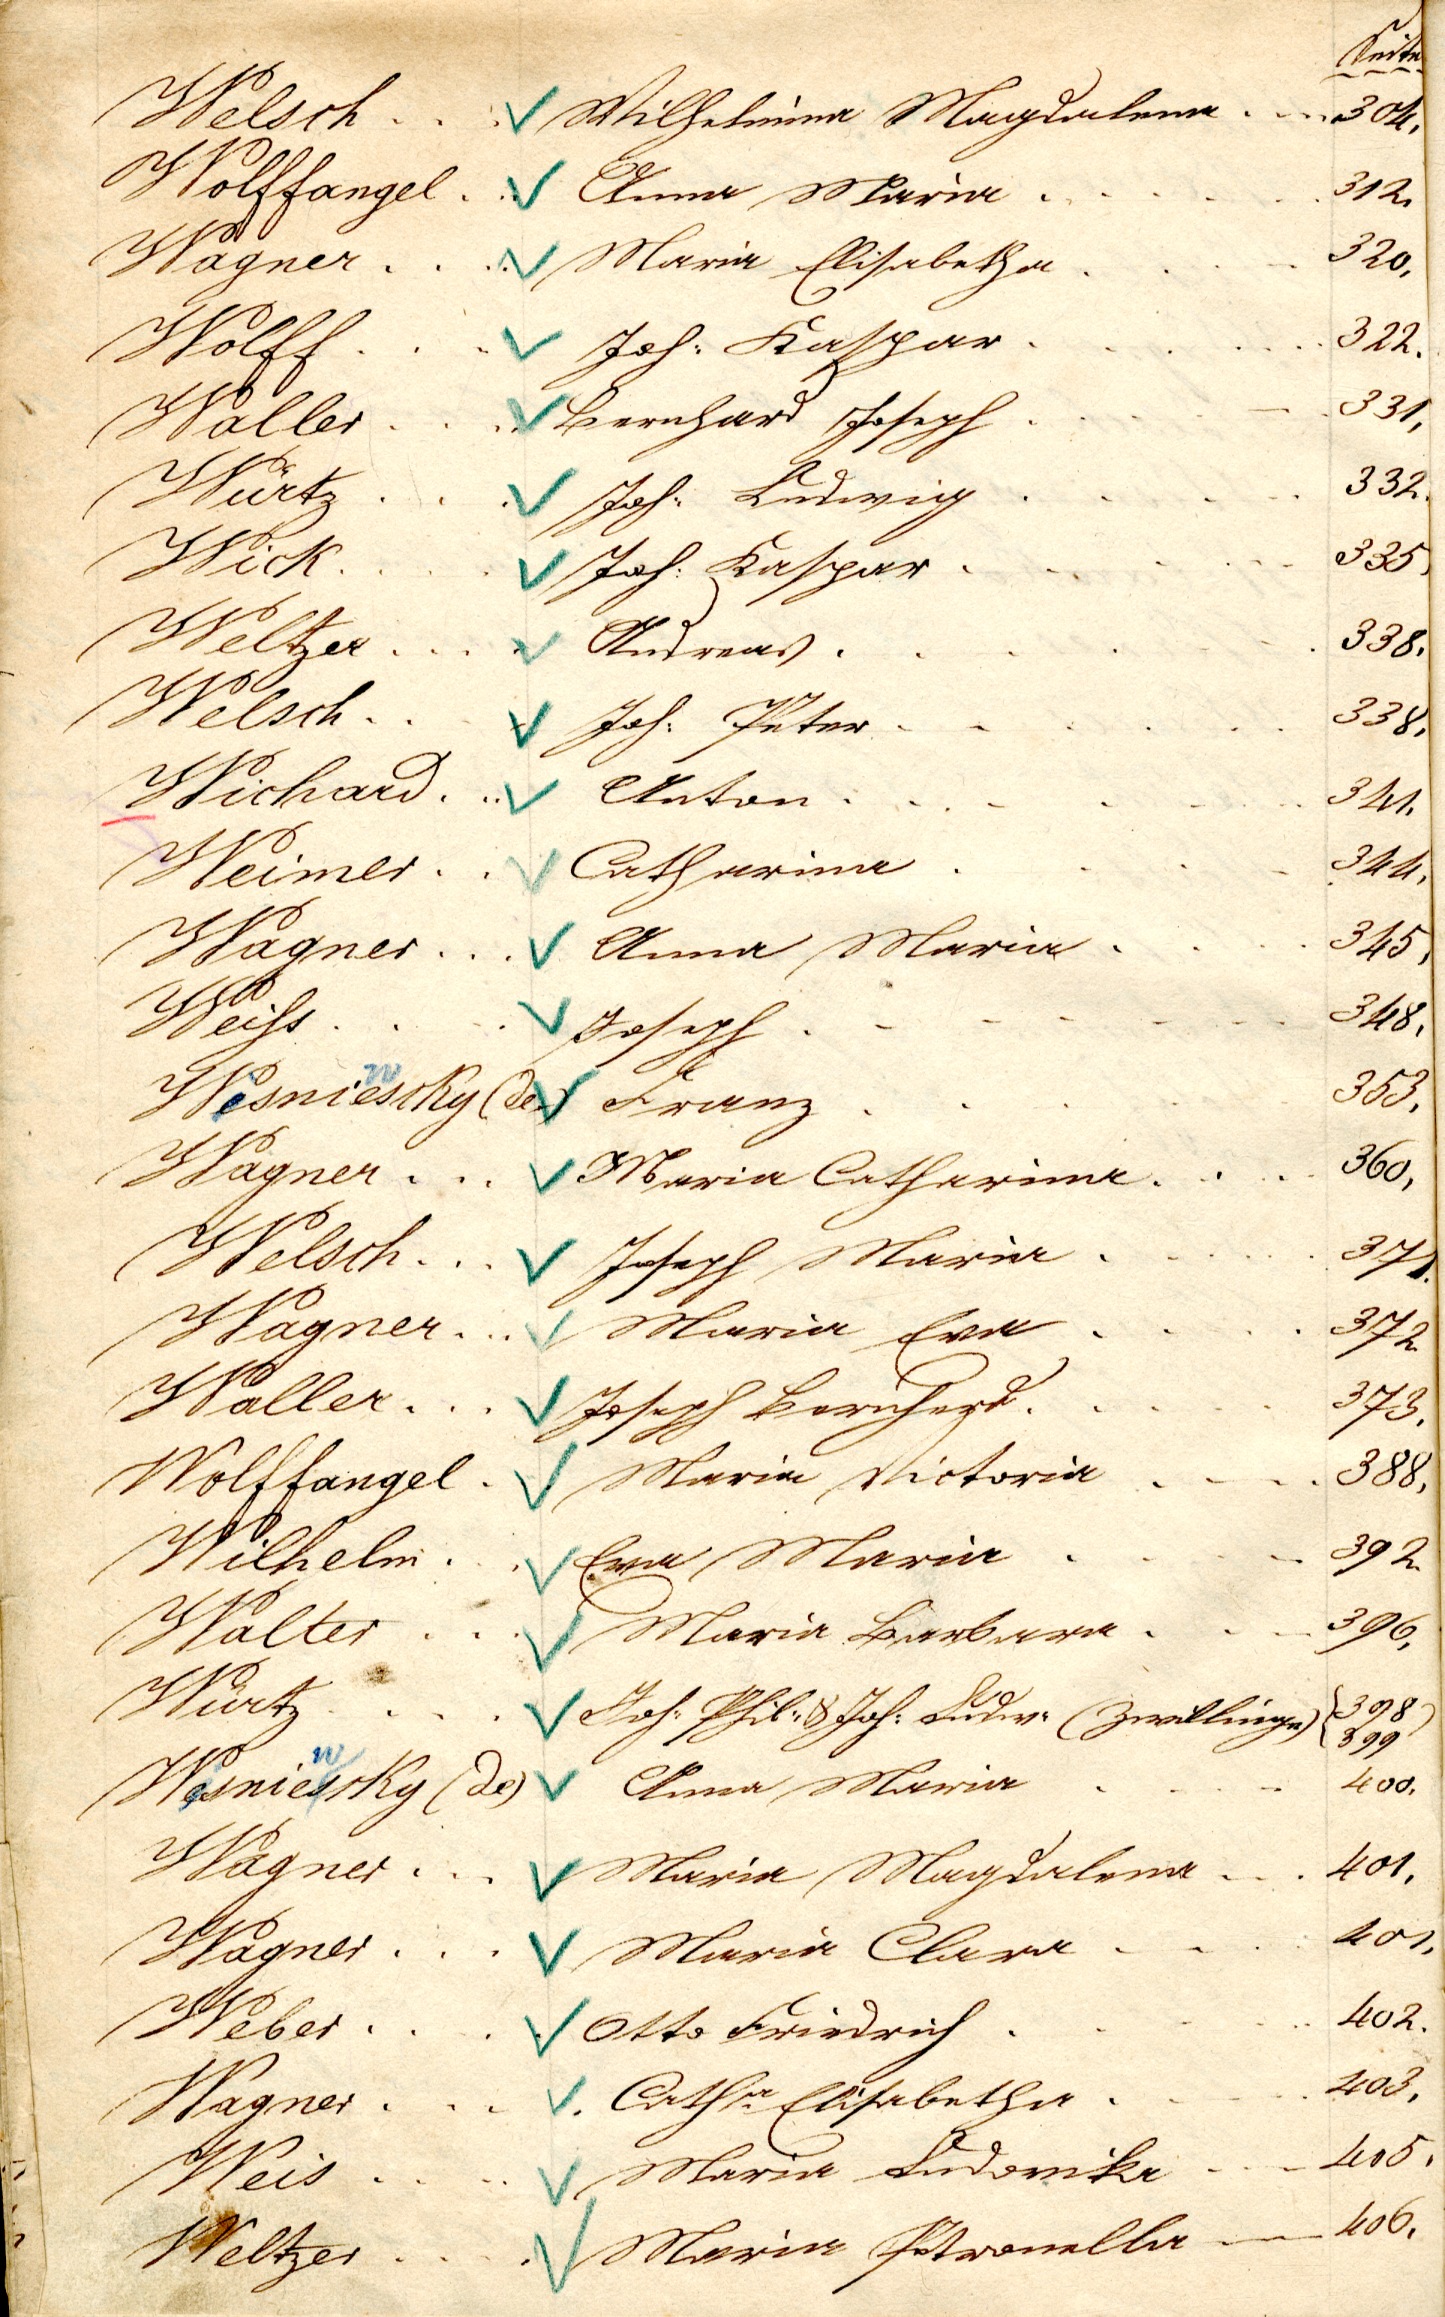 Seite
Welsch . . . Wilhelmina Magdalena . . . 304.
Wolffangel . . Anna Maria . . . 312.
Wagner . . . Maria Elisabetha . . . 320.
Wolff . . . Joh: Kaspar . . . 322.
Waller . . . Bernhard Joseph . . . 331.
Würtz . . . Joh: Ludwig . . . 332.
Wick . . . Joh: Kaspar . . . 335.
Weltzer . . . Andreas . . . 338.
Welsch . . . Joh: Peter . . . 338.
Wichard . . . Anton . . . 341.
Weimer . . . Catharina . . . 344.
Wagner . . . Anna Maria . . . 345.
Weiſs . . . Joseph . . . 348.
w
Wisniescky (de) Franz . . . 353.
Wagner . . . Maria Catharina . . . 360.
Welsch . . . Joseph Maria . . . 371.
Wagner . . . Maria Eva . . . 372.
Waller . . . Joseph Bernhard . . . 373.
Wolffangel . Maria Victoria . . . 388.
Wilhelm . . . Eva Maria . . . 392.
Walter . . . Maria Barbara . . . 396.
Würtz . . . Joh: Phil: & Joh: Ludw: (Zwillinge) 398
399
w
Wisniescky (de) Anna Maria . . . 400.
Wagner . . . Maria Magdalena . . . 401.
Wagner . . . Maria Clara . . . 401.
Weber . . . Otto Friedrich . . . 402.
Wagner . . . Catha Elisabetha . . . 403.
Weis . . . Maria Ludovika . . . 405.
Weltzer . . . Maria Petronella . . . 406.